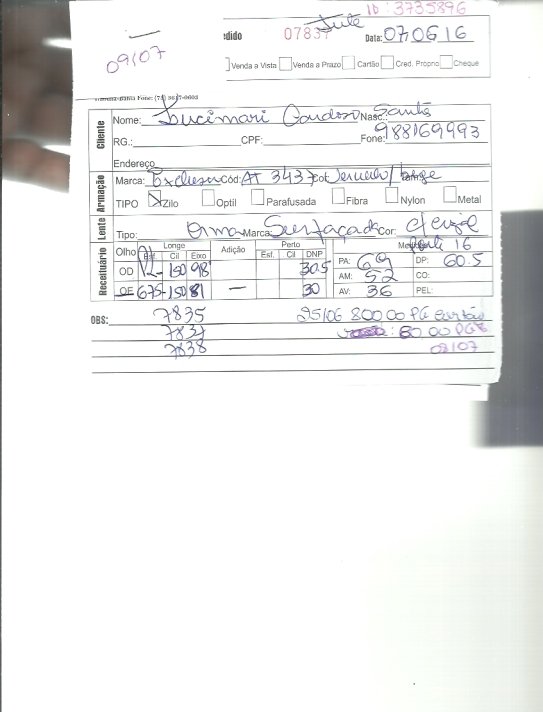 ID: 3735896
Jule
dido 0783 Data: 07.06 16
09/07
Venda a Vista Venda a Prazo Cartão Cred. Proprio Cheque
Fone: (75) 3617-0003
Cliente
Nome: Lucimari Cardoso Nasc.: Santos
RG.: CPF: Fone: 988169993
Endereço
Armação
Marca: Exclusen Cód: AT 3437 Cor: Vermelho/bege
TIPO Zilo Optil Parafusada Fibra Nylon Metal
Lente
Tipo: Orma Marca: Surfaçada Cor:
Receituário
Olho Longe Adição Perto 16
Esf. Cil Eixo Esf. Cil DNP PA: 69 DP: 60.5
OD -150 98 30.5 AM: 52 CO:
OE -675 -150 81 — 30 AV: 36 PEL:
OBS: 7835 25/06 800 00 PG cartão
7837 60 00 PG
7838 09/07